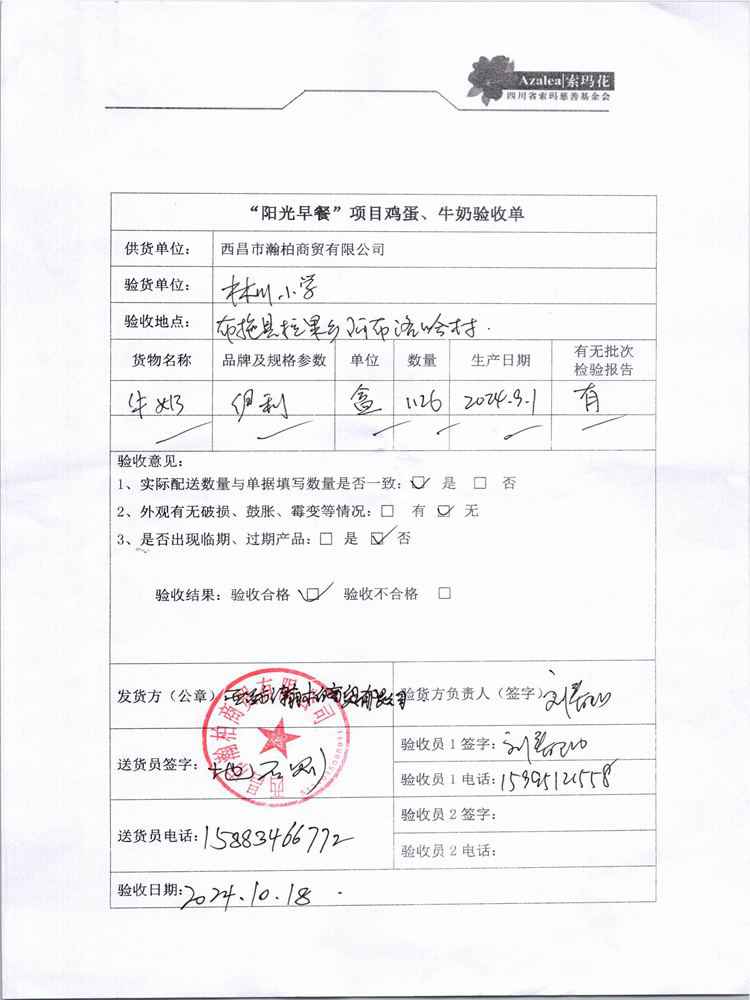 Azalea|索玛花
四川省索玛慈善基金会
“阳光早餐”项目鸡蛋、牛奶验收单
供货单位： 西昌市瀚柏商贸有限公司
验货单位： 林川小学
验收地点： 布拖县拉果乡阿布洛哈村.
货物名称 品牌及规格参数 单位 数量 生产日期 有无批次检验报告
牛奶 伊利 盒 1126 2024.9.1 有
验收意见：
1、实际配送数量与单据填写数量是否一致：☑ 是 □ 否
2、外观有无破损、鼓胀、霉变等情况：□ 有 ☑ 无
3、是否出现临期、过期产品：□ 是 ☑ 否
验收结果：验收合格 ☑ 验收不合格 □
发货方（公章） 验货方负责人（签字）
送货员签字： 验收员 1 签字：
验收员 1 电话：
送货员电话：15883466772 验收员 2 签字：
验收员 2 电话：
验收日期：2024.10.18.